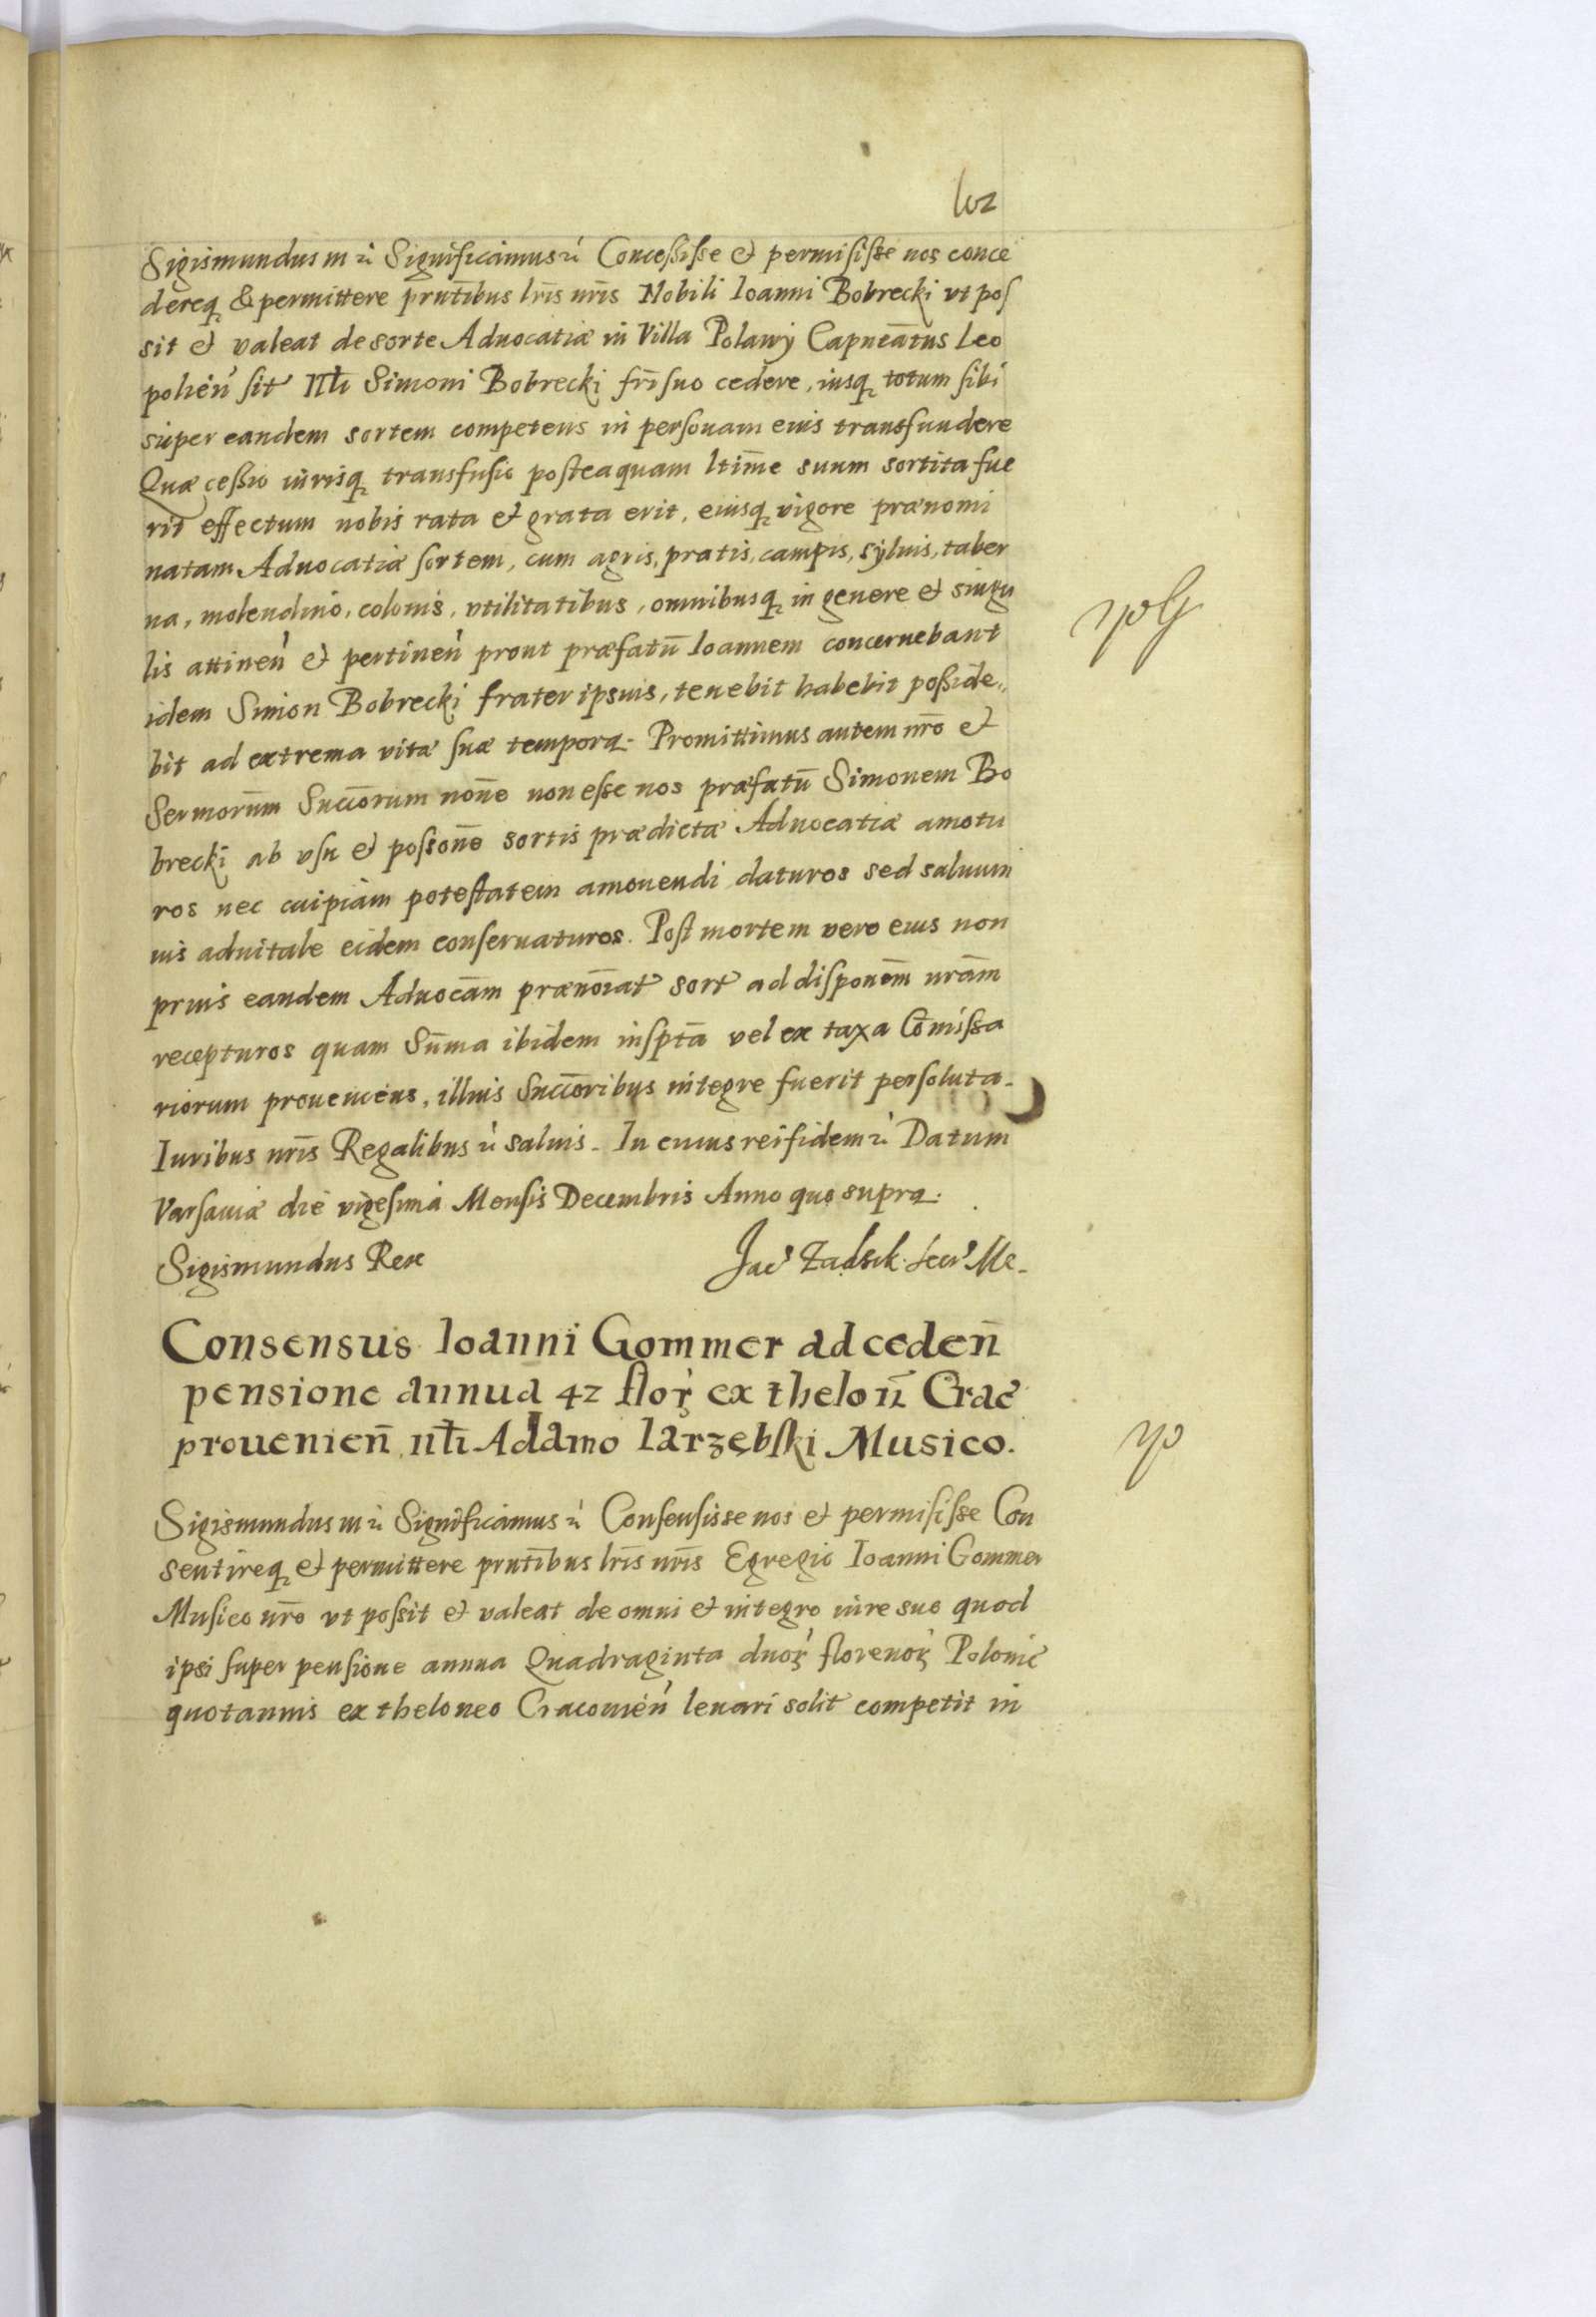 102
Sigismundus III r̃ Significamus r̃ Concessisse et permisisse nos conce
dereq̨ & permittere pñtibus lr̃is nr̃is Nobili Ioanni Bobrecki vt pos
sit et valeat de sorte Aduocatiæ in Villa Polany Capneātus Leo
polień sit Nłi Simoni Bobrecki fr̃i suo cedere, iusq̨ totum sibi
super eandem sortem competens in personam eius transfundere
Quæ cessio iurisq̨ transfusio posteaquam ltim̄e suum sortita fue
rit effectum nobis rata et grata erit, eiusq̨ vigore prænomi
natam Aduocatiæ sortem, cum agris, pratis, campis, syluis, taber
na, molendino, colonis, vtilitatibus, omnibusq̨ in genere et singu
lis attineń et pertineń prout præfatū Ioannem concernebant
idem Simon Bobrecki frater ipsius, tenebit habebit posside„
bit ad extrema vitæ suæ tempora. Promittimus autem nr̃o et
Sermorūm Succōrum noīne non esse nos præfatū Simonem Bo
brecki ab vsu et possōne sortis prædictæ Aduocatiæ amotu
ros nec cuipiam potestatem amouendi daturos sed saluum
ius aduitale eidem conseruaturos. Post mortem vero eius non
prius eandem Aduocām prænōiat sort ad disponēm nrām
recepturos quam Sūma ibidem inspta vel ex taxa Cōmissa
riorum proueniens, illius Succōribus integre fuerit persoluta.
Iuribus nr̃is Regalibus r̃ saluis. In cuius rei fidem r̃ Datum
Varsauiæ die vigesima Mensis Decembris Anno quo supra.
Sigismundus Rex Jac Zadsik Secr Me.
Consensus Ioanni Gommer ad ceden̄
pensione annua 42 flor ex thelon̄ Crac
prouenien̄ nłi Adamo Iarzębski Musico.
Sigismundus III r̃ Significamus r̃ Consensisse nos et permisisse Con
sentireq̨ et permittere pñtibus lr̃is nr̃is Egregio Ioanni Gommer
Musico nr̃o vt possit et valeat de omni et integro iure suo quod
ipsi super pensione annua Quadraginta duoꝝ florenoꝝ Polonic
quotannis ex theloneo Cracouień leuari solit competit in